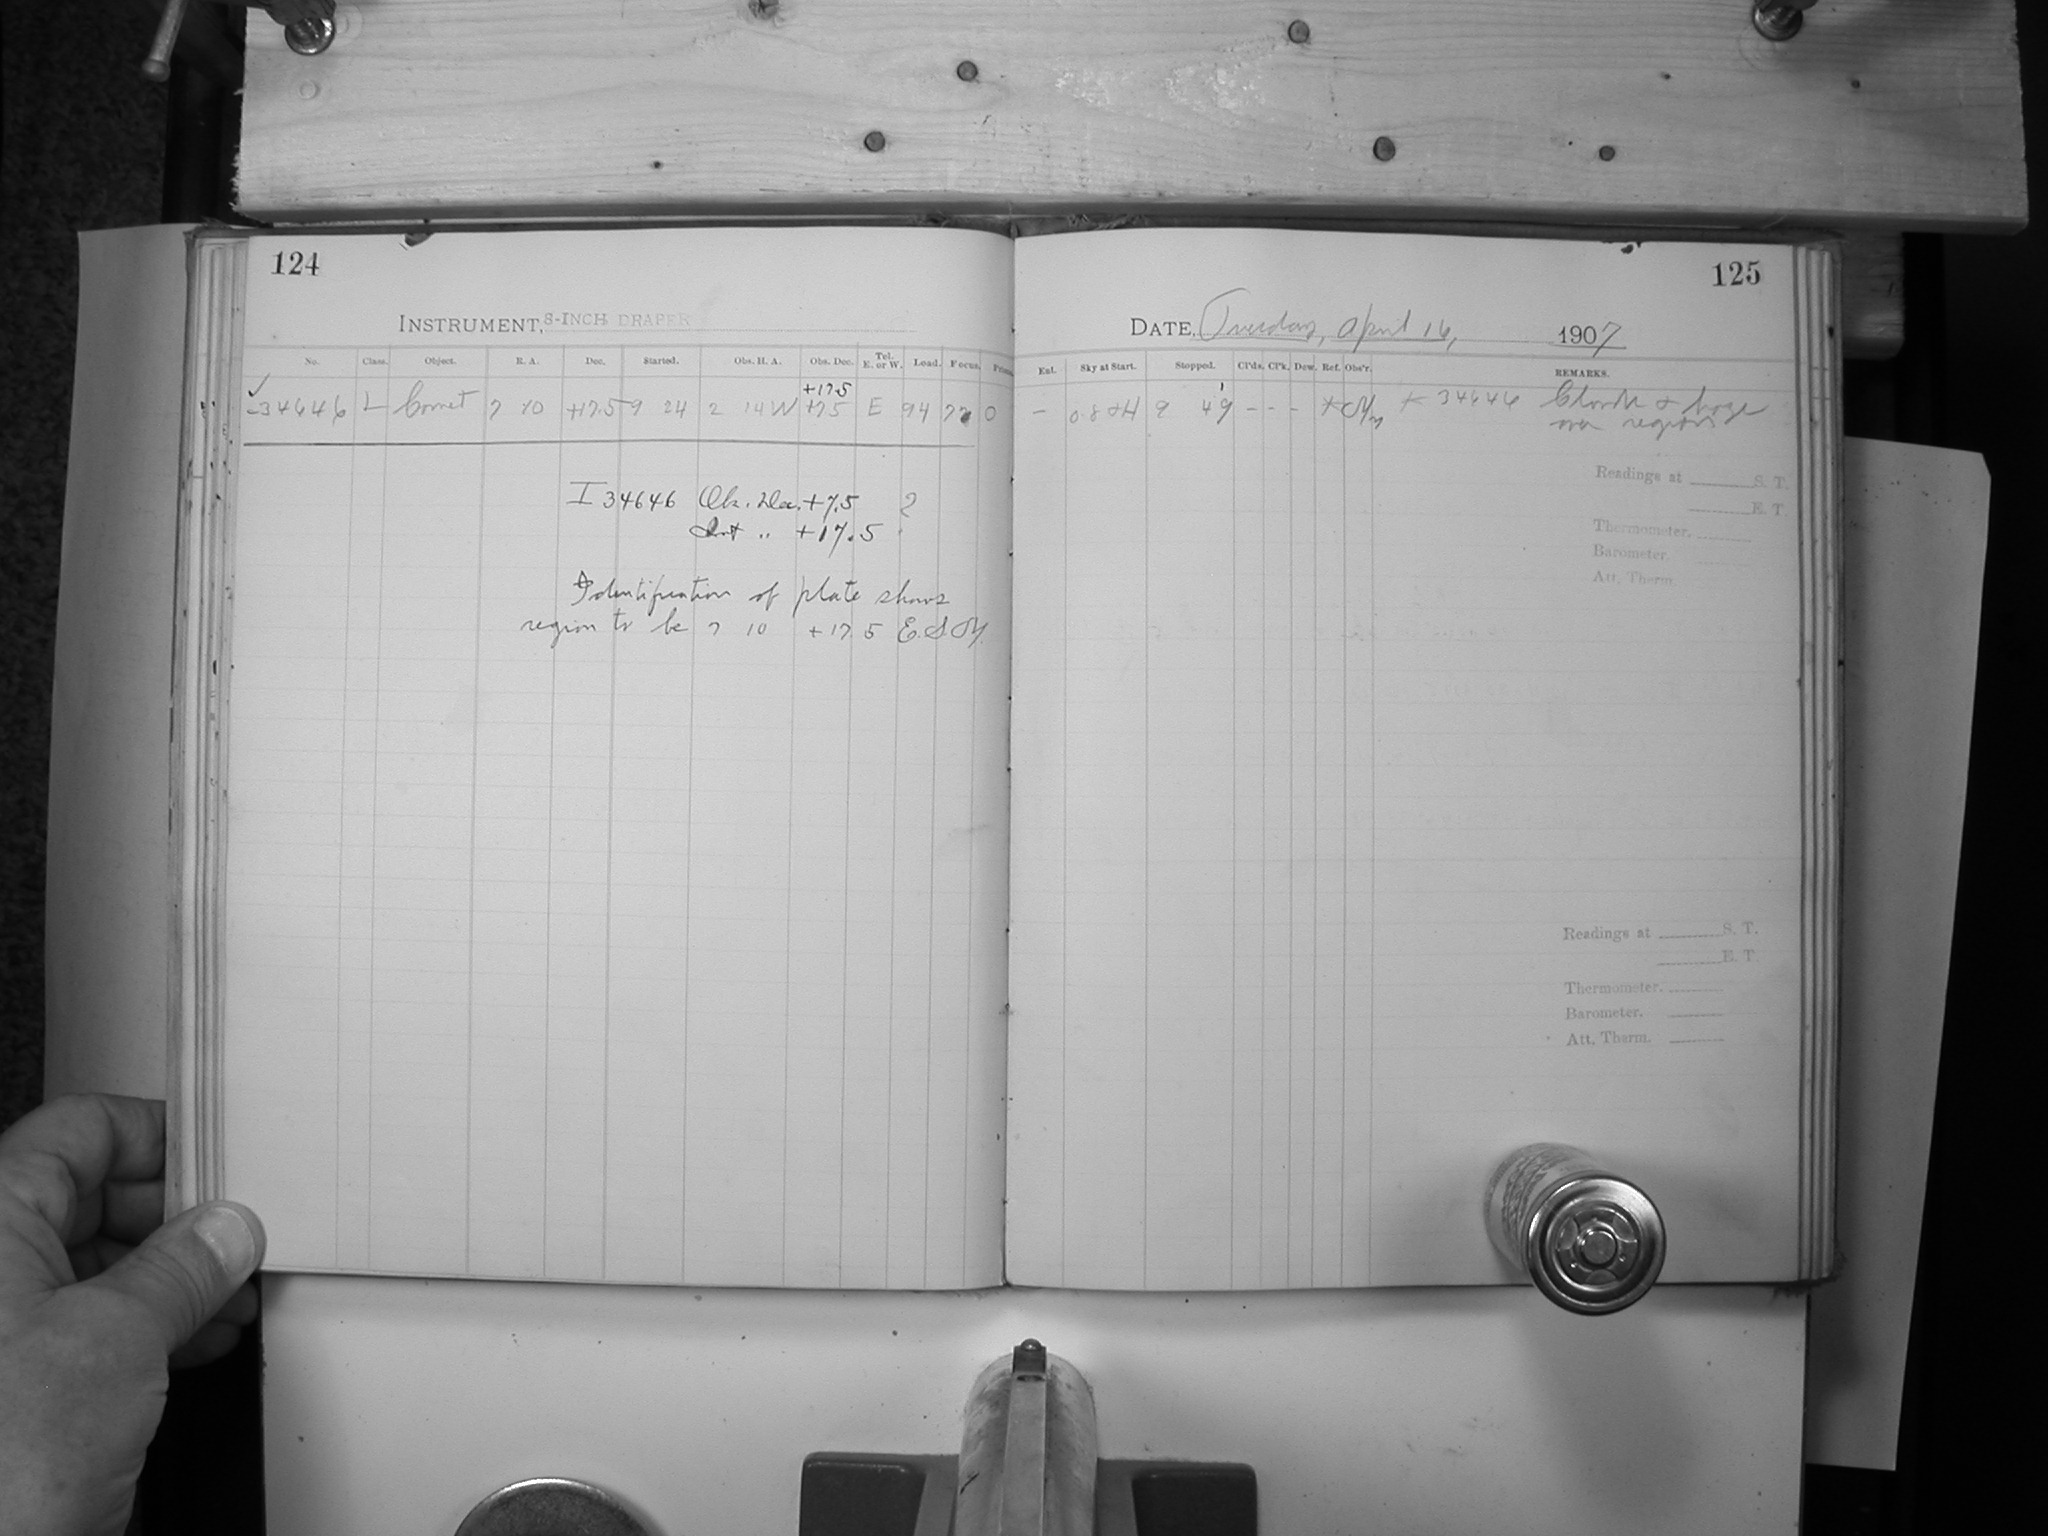 124
INSTRUMENT, 8-INCH DRAPER
No. Class. Object. R. A. Dec. Started. Obs. H. A. Obs. Dec. Tel. E. or W. Load. Focus.
+17.5
34646 L Comet 7 10 +17.5 9 24 2 14 W +7.5 E 94 0
I 34646 Obs. Dec. +7.5 ?
" +17.5
Identification of plate shows
region to be 7 10 +17.5 E.S.M.
125
DATE, Tuesday, April 16, 1907
Ent. Sky at Start. Stopped. Cl'ds. Cl'k. Dew. Ref. Obs'r. REMARKS.
– 0.8 9 49 - - - * * 34646 Clouds & haze
over region
Readings at S. T.
E. T.
Thermometer.
Barometer.
Att. Therm.
Readings at S. T.
E. T.
Thermometer.
Barometer.
Att. Therm.